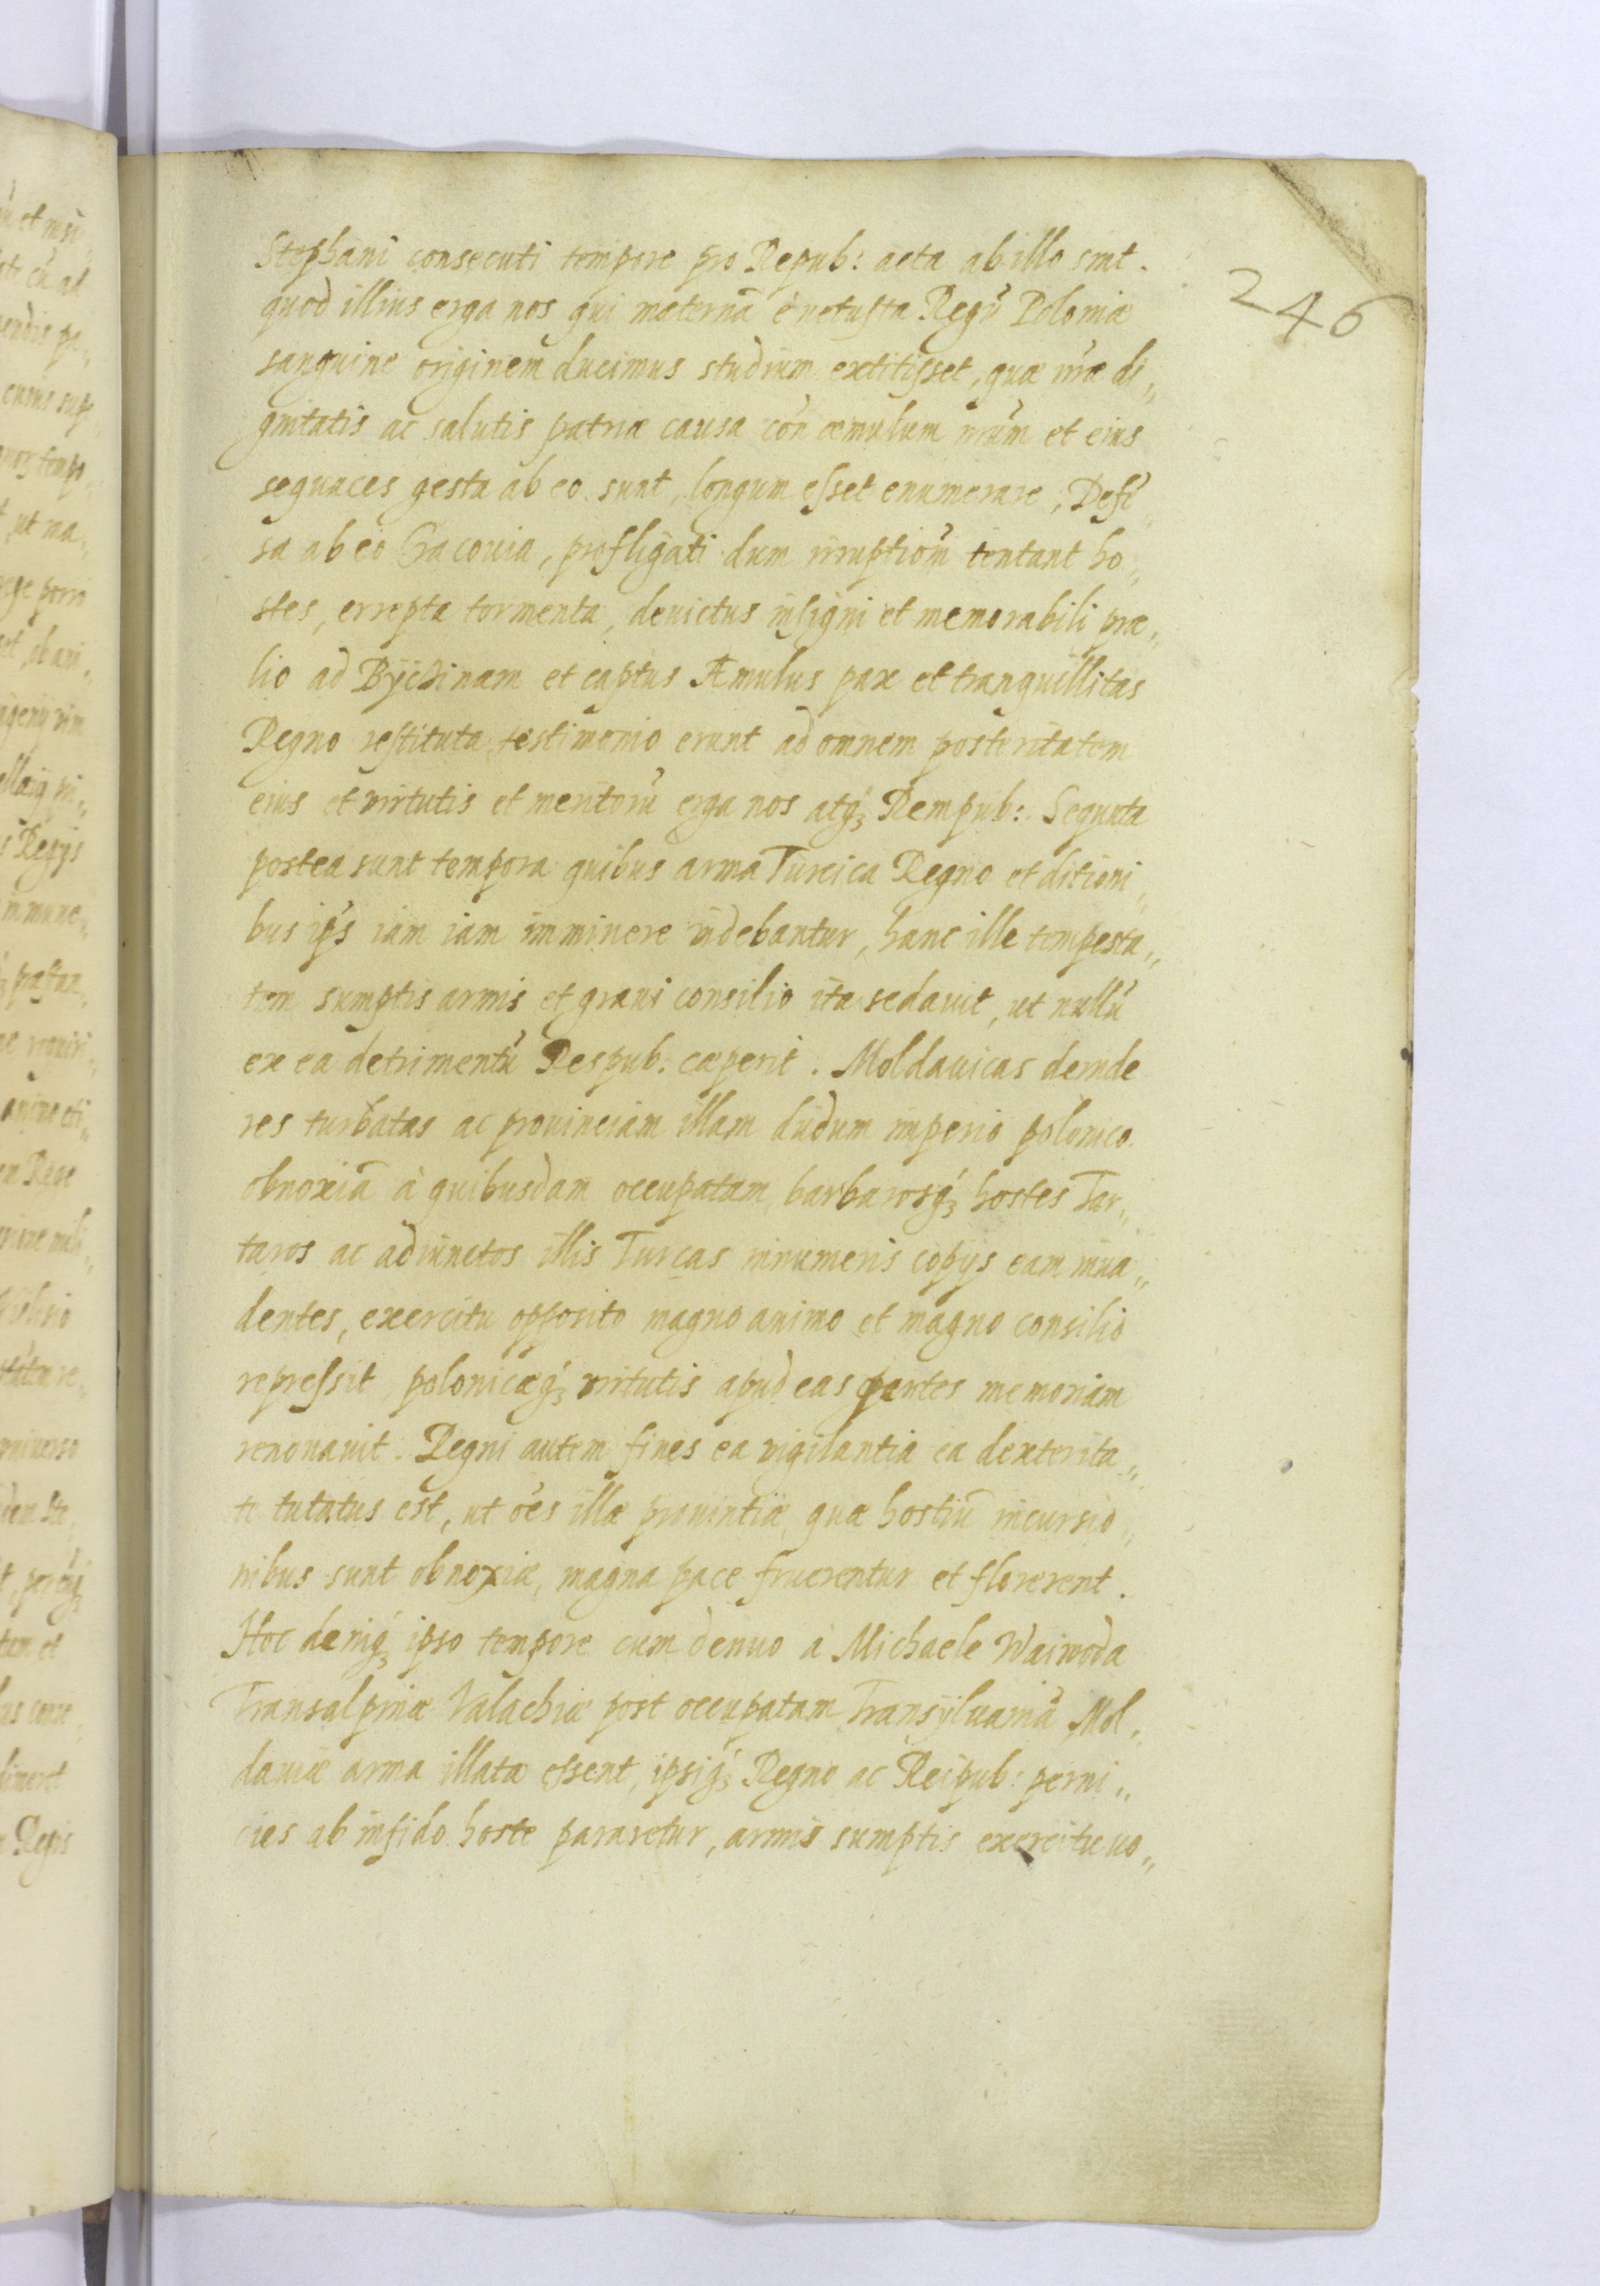 246
Stephani consecuti tempore pro Repub: acta ab illo sint.
quod illius erga nos qui maternā è vetusta Regū Polonia
sanguine originem ducimus studium extitisset, quæ nr̃æ di„
gnitatis ac salutis patriæ causa con̄ æmulum nr̃um et eius
sequaces gesta ab eo sunt, longum esset enumerare, Defē„
sa ab eo Cracouia, profligati dum irruptiōm tentant ho„
stes, errepta tormenta, deuictus insigni et memorabili præ„
lio ad Bÿcżinam et captus Æmulus pax et tranquillitas
Regno restituta testimonio erunt ad omnem posteritatem
eius et virtutis et meritorū erga nos atq3 Rempub: Sequuta
postea sunt tempora quibus arma Turcica Regno et ditioni„
bus ip̄s iam iam imminere videbantur, hanc ille tempesta„
tem sumptis armis et graui consilio ita sedauit, ut nullū
ex ea detrimentū Respub: cæperit. Moldauicas deinde
res turbatas ac prouinciam illam dudum imperio polonico
obnoxiā à quibusdam occupatam, barbarosq3 hostes Tar„
taros ac adiunctos illis Turcas innumeris copijs eam inua„
dentes, exercitu opposito magno animo et magno consilio
repressit, polonicæq3 virtutis apud eas gentes memoriam
renouauit. Regni autem fines ea vigilantia ea dexterita„
te tutatus est, ut ōes illæ prouintiæ, quæ hostiū incursio„
nibus sunt obnoxiæ, magna pace fruerentur et florerent.
Hoc deniq3 ipso tempore cum denuo à Michaele Waiwoda
Transalpinæ Valachiæ post occupatam Transÿluaniā Mol„
dauiæ arma illata essent, ipsiq3 Regno ac Reipub: perni„
cies ab infido hoste pararetur, armis sumptis exercitu uo„